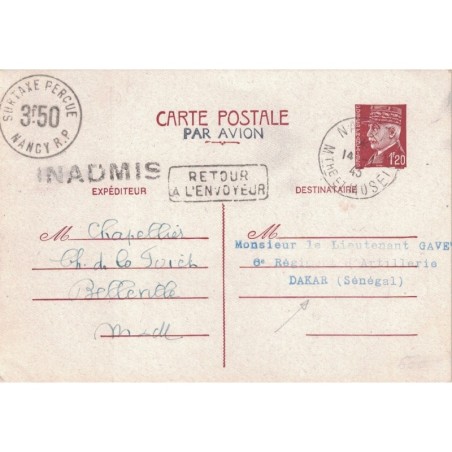 SURTAXE PERCUE
3F50
NANCY R.P
CARTE POSTALE
PAR AVION
1F20
INADMIS
RETOUR
A L'ENVOYEUR
EXPÉDITEUR
DESTINATAIRE
14
45
M Chapellier
Ch. de la
Belleville
M-&-M
M
Monsieur le Lieutenant GAVET
6e Régiment d'Artillerie
DAKAR (Sénégal)